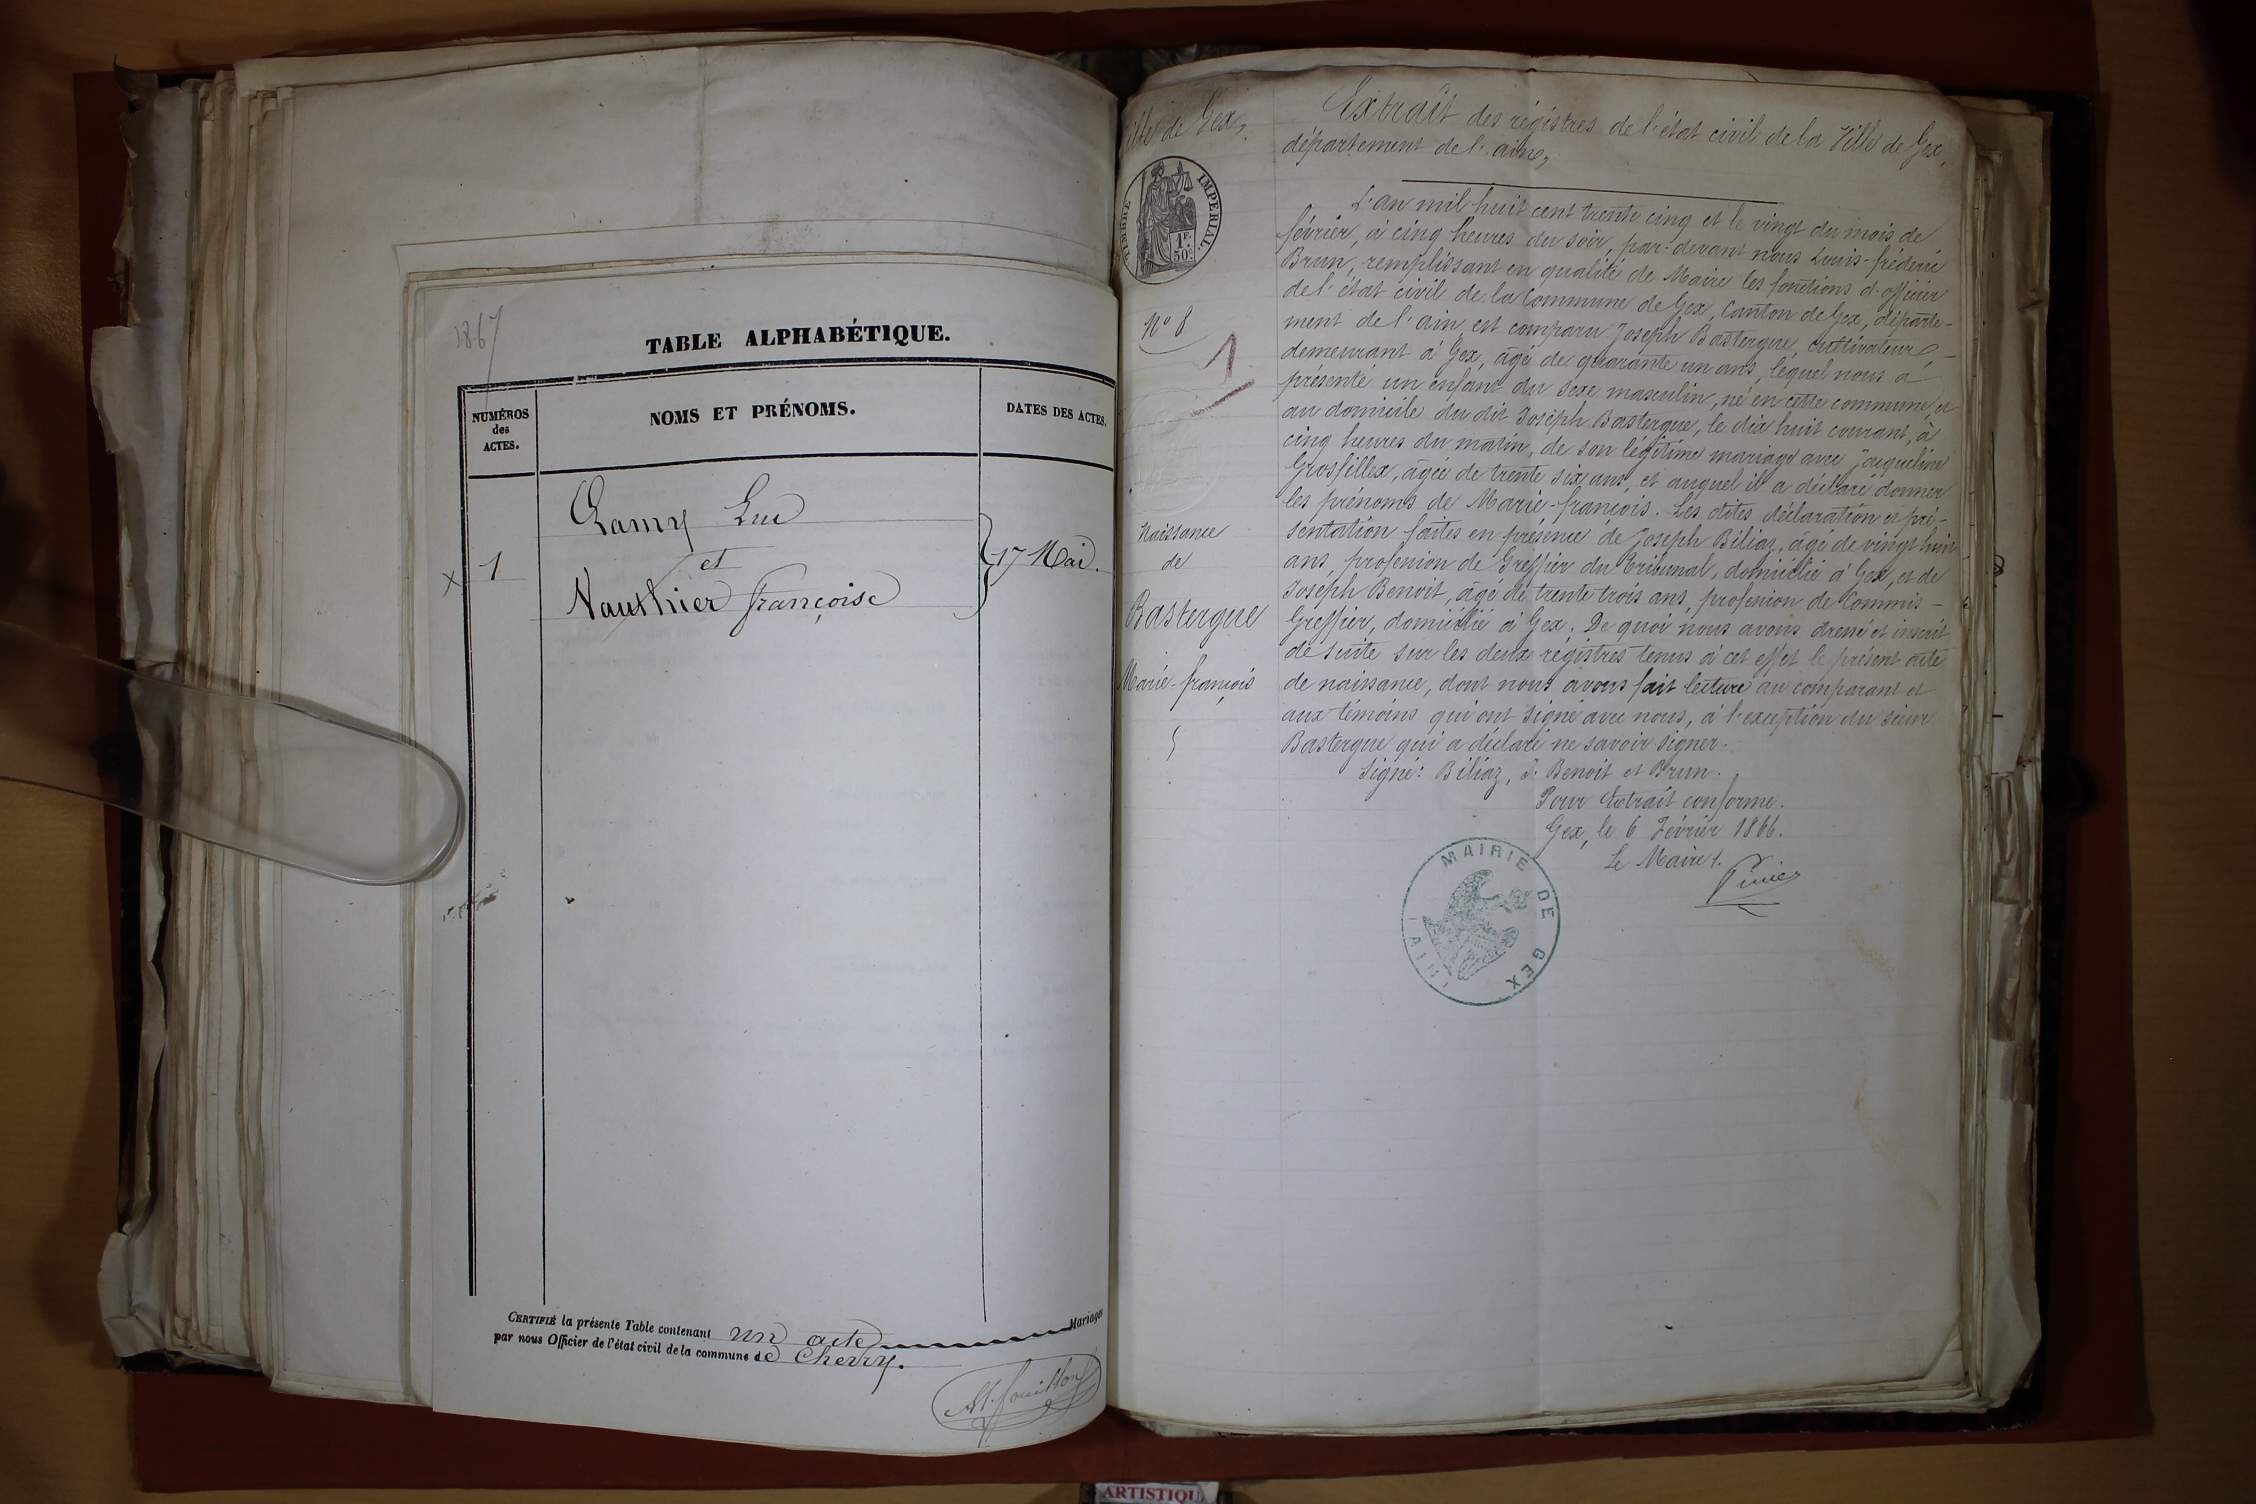 1867
TABLE ALPHABÉTIQUE.
NUMÉROS
des
ACTES.
NOMS ET PRÉNOMS.
DATES DES ACTES.
Lamy Luc
et
x 1
17 Mai.
Vauthier françoise
CERTIFIÉ la présente Table contenant un acte Mariages
par nous Officier de l'état civil de la commune de Chevry.
ville de Gex,
TIMBRE IMPÉRIAL.
1F.
50C.
N° 8
1
Naissance
de
Bastergue
Marie-françois
Extrait des régistres de l'état civil de la Ville de Gex,
département de l'ain,
L'an mil huit cent trente cinq et le vingt du mois de
février, à cinq heures du soir, par-devant nous Louis-fréderic
Brun, remplissant en qualité de Maire les fonctions d'officier
de l'état civil de la Commune de Gex, Canton de Gex, départe-
ment de l'ain, est comparu Joseph Bastergue, cultivateur
demeurant à Gex, âgé de quarante un ans, lequel nous a
présenté un enfant du sexe masculin, né en cette commune, et
au domicile du dit Joseph Bastergue, le dix huit courant, à
cinq heures du matin, de son légitime mariage avec Jacqueline
Grosfillex, âgée de trente six ans, et auquel il a déclaré donner
les prénoms de Marie-françois. Les dites déclaration et pré-
sentation faites en présence de Joseph Biliaz, âgé de vingt huit
ans, profession de Greffier du tribunal, domicilié à Gex, et de
Joseph Benoit, âgé de trente trois ans, profession de Commis-
Greffier, domicilié à Gex. De quoi nous avons dressé et inscrit
de suite sur les deux régistres tenus à cet effet le présent acte
de naissance, dont nous avons fait lecture au comparant et
aux témoins qui ont signé avec nous, à l'exception du sieur
Bastergue qui a déclaré ne savoir signer.
Signé: Biliaz, J. Benoit et Brun.
Pour Extrait conforme.
Gex, le 6 Février 1866.
Le Maire
MAIRIE DE GEX
(AIN)
ARTISTIQU